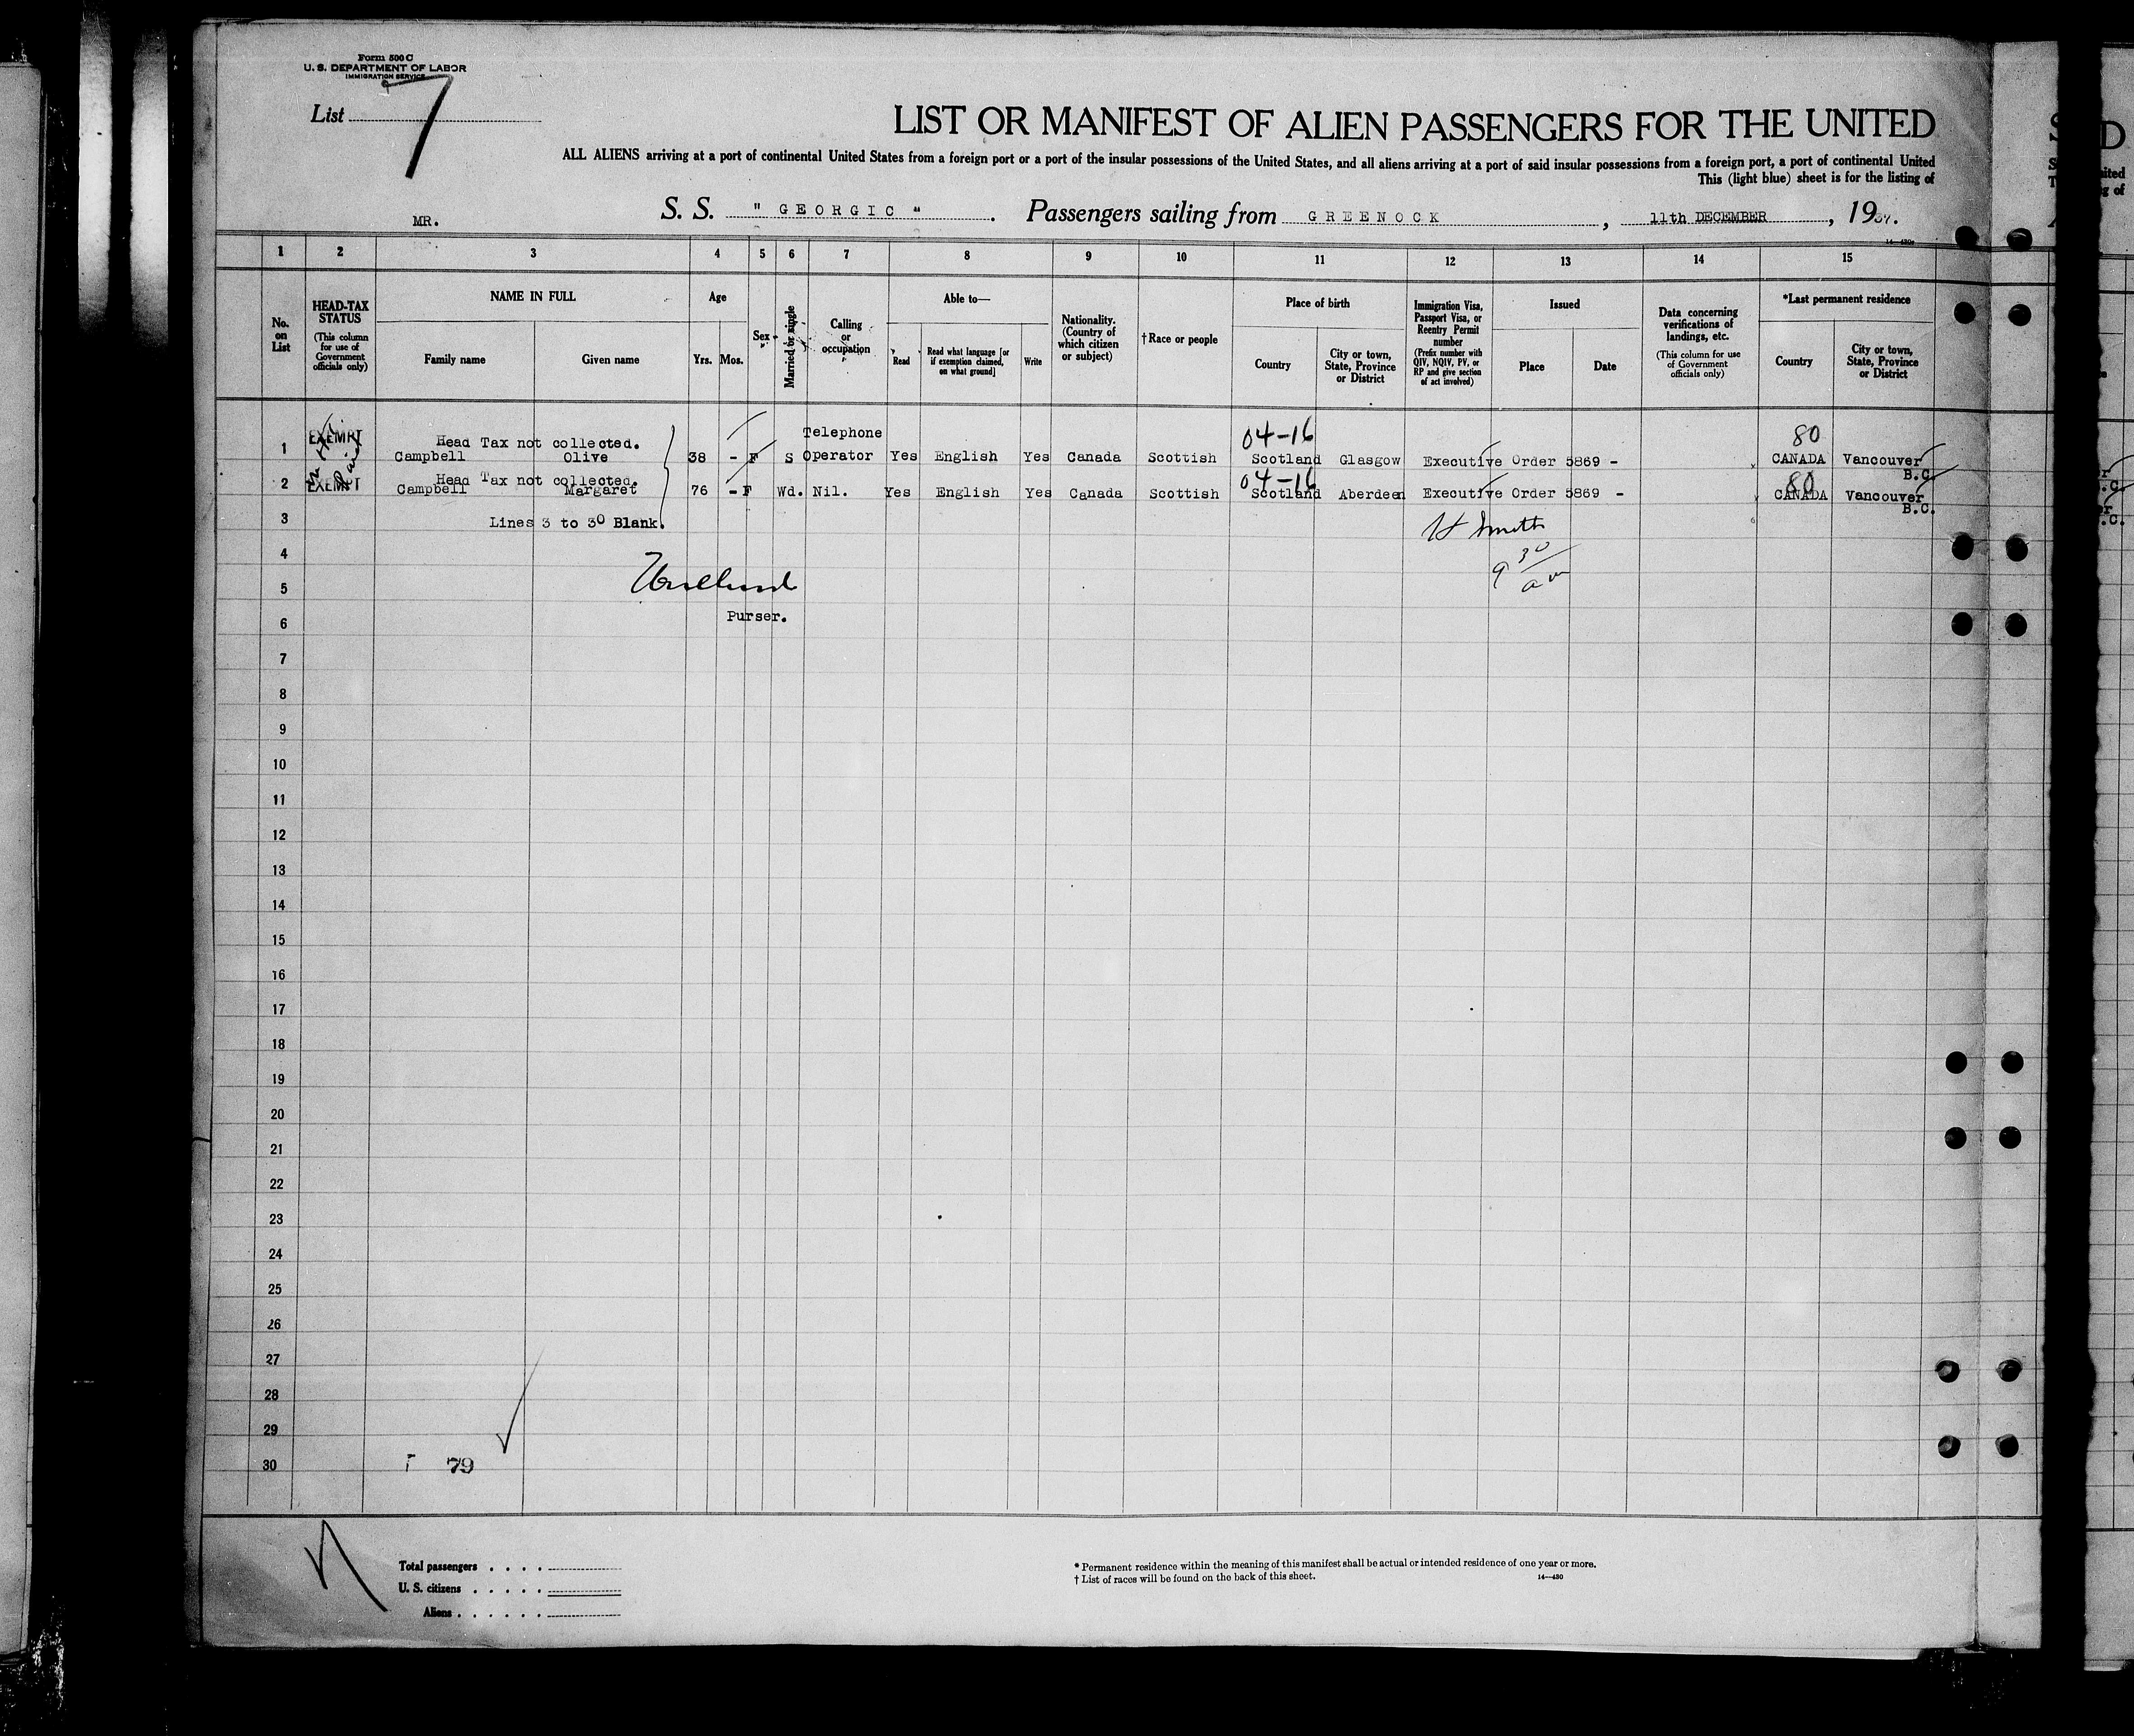 Form 500 C
U. S. DEPARTMENT OF LABOR
IMMIGRATION SERVICE
List 7
LIST OR MANIFEST OF ALIEN PASSENGERS FOR THE UNITED
ALL ALIENS arriving at a port of continental United States from a foreign port or a port of the insular possessions of the United States, and all aliens arriving at a port of said insular possessions from a foreign port, a port of continental United
This (light blue) sheet is for the listing of
MR. S. S. " GEORGIC " . Passengers sailing from GREENOCK , 11th DECEMBER , 1937.
1 2 3 4 5 6 7 8 9 10 11 12 13 14 15
No. on List
HEAD-TAX STATUS (This column for use of Government officials only)
NAME IN FULL
Family name Given name
Age
Yrs. Mos.
Sex
Married or single
Calling or occupation
Able to—
Read Read what language [or if exemption claimed, on what ground] Write
Nationality. (Country of which citizen or subject)
†Race or people
Place of birth
Country City or town, State, Province or District
Immigration Visa, Passport Visa, or Reentry Permit number (Prefix number with QIV, NQIV, PV, or RP and give section of act involved)
Issued
Place Date
Data concerning verifications of landings, etc. (This column for use of Government officials only)
*Last permanent residence
Country City or town, State, Province or District
EXEMPT Head Tax not collected. Telephone 04-16 80
1 Campbell Olive 38 - F S Operator Yes English Yes Canada Scottish Scotland Glasgow Executive Order 5869 - CANADA Vancouver B.C.
EXEMPT Head Tax not collected. 04-16 80
2 Campbell Margaret 76 - F Wd. Nil. Yes English Yes Canada Scottish Scotland Aberdeen Executive Order 5869 - CANADA Vancouver B.C.
3 Lines 3 to 30 Blank. H Smith
4 9 30 am
5
6 Purser.
7
8
9
10
11
12
13
14
15
16
17
18
19
20
21
22
23
24
25
26
27
28
29
30 79
Total passengers . . . .
U. S. citizens . . . . .
Aliens . . . . . .
* Permanent residence within the meaning of this manifest shall be actual or intended residence of one year or more.
† List of races will be found on the back of this sheet. 14—430